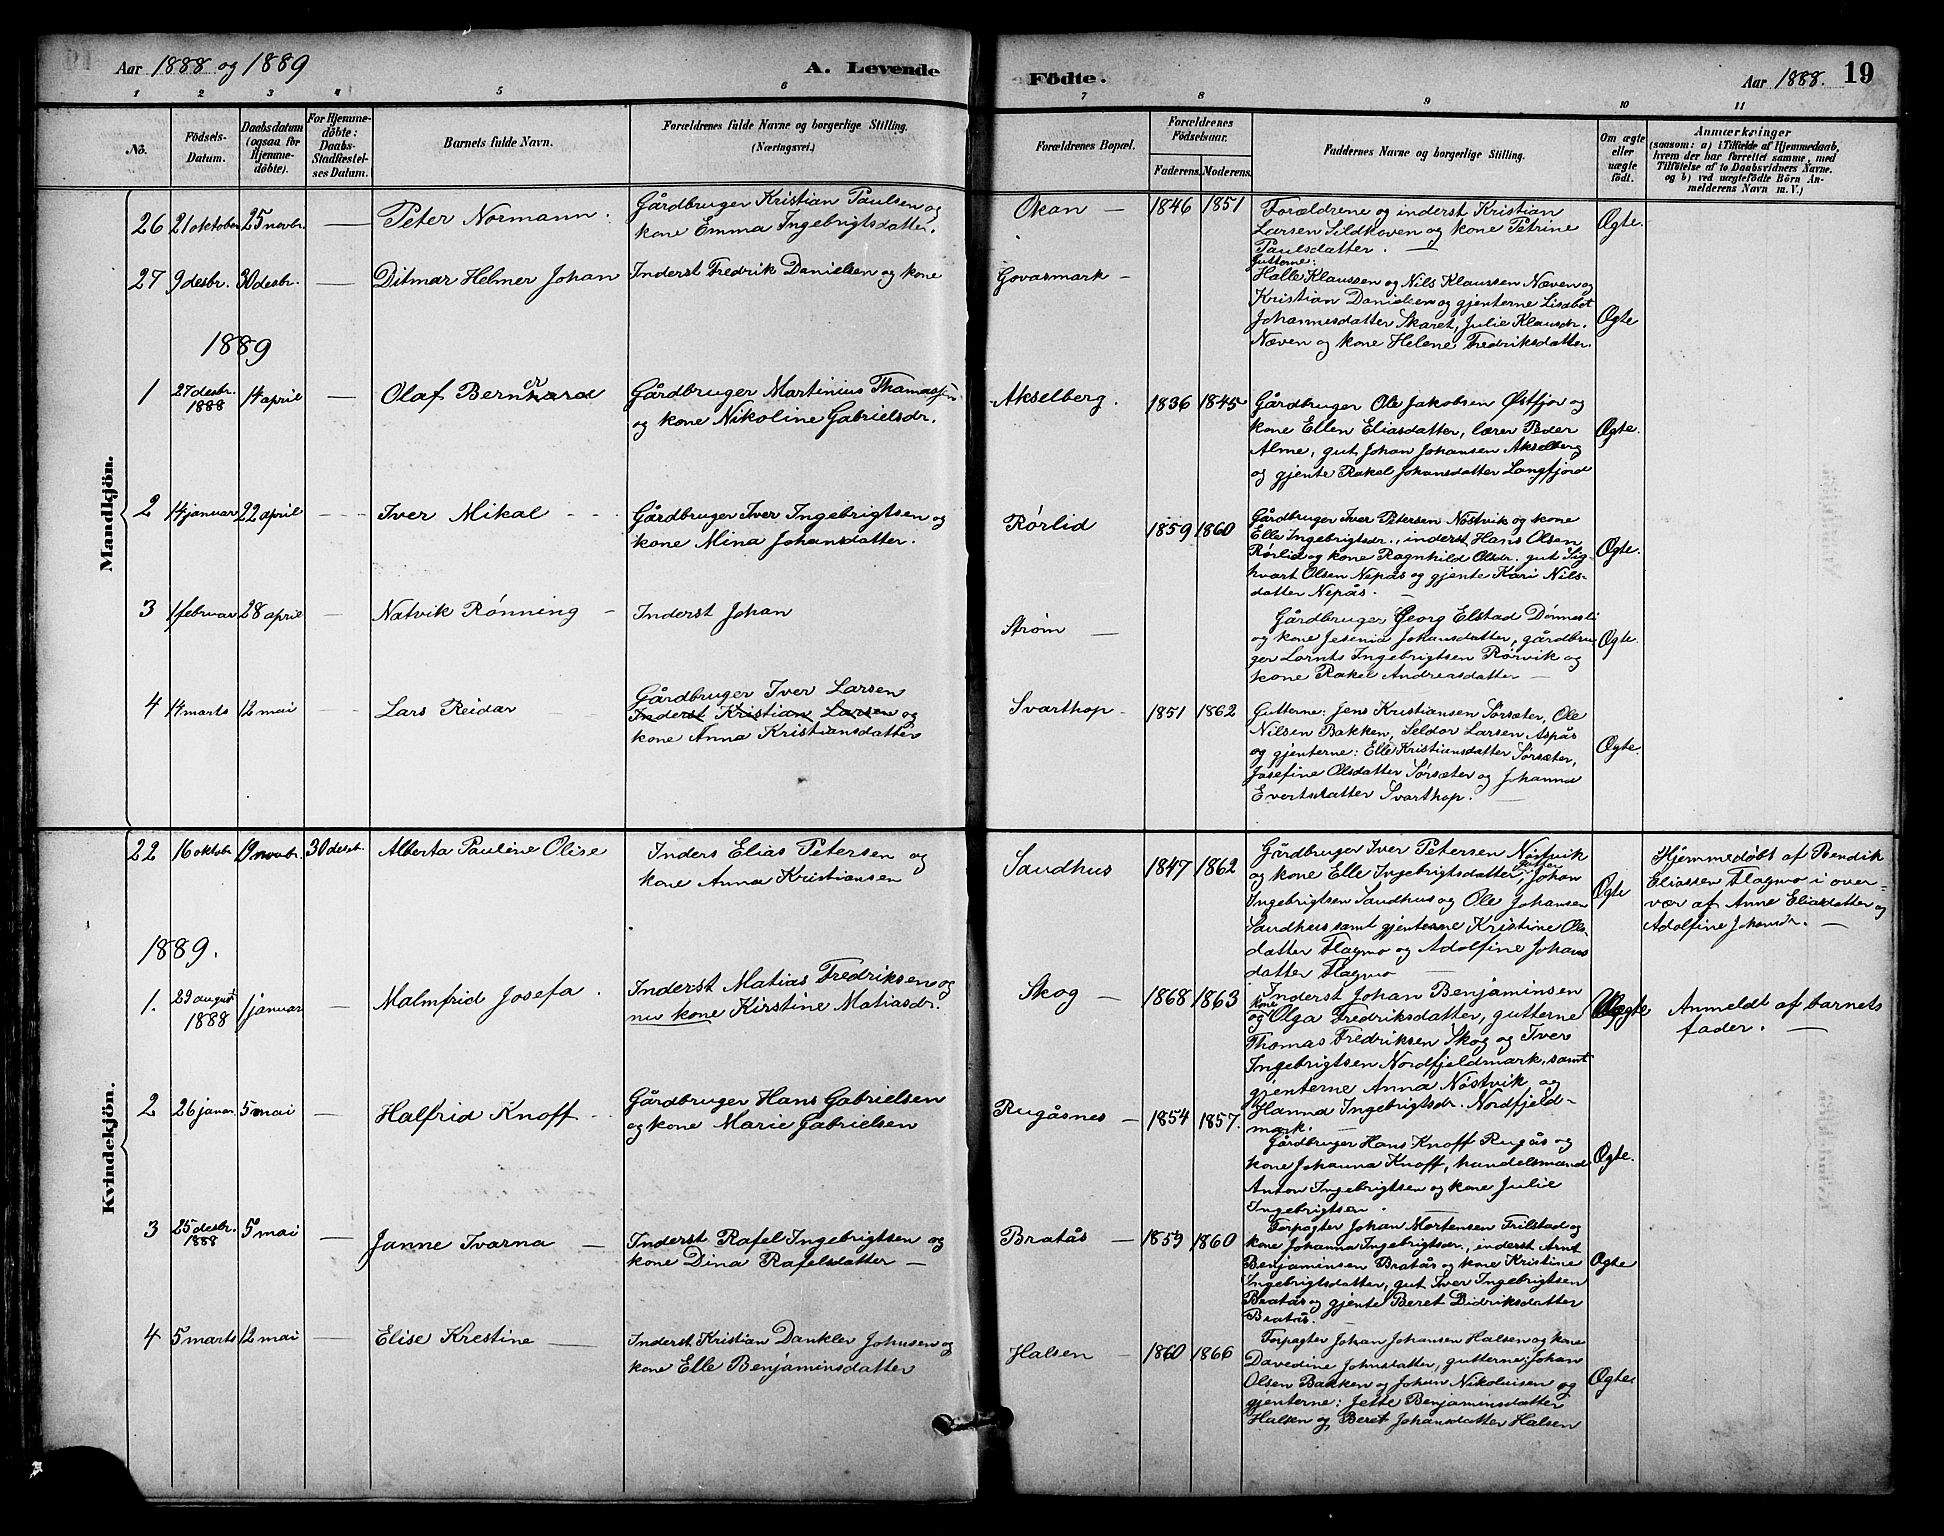 Aar 1888 og 1889
A. Levende
Födte.
Aar 1888. 19
1 2 3 4 5 6 7 8 9 10 11
Nö.
Födsels-
Datum.
Daabsdatum
(ogsaa for
Hjemme-
döbte).
For Hjemme-
döbte:
Daabs-
Stadfæstel-
ses Datum.
Barnets fulde Navn.
Forældrenes fulde Navne og borgerlige Stilling.
(Næringsvei.)
Forældrenes Bopæl.
Forældrenes
Födselsaar.
Faderens. Moderens.
Faddernes Navne og borgerlige Stilling.
Om ægte
eller
uægte
födt.
Anmærkninger
(saasom: a) i Tilfælde af Hjemmedaab,
hvem der har forrettet samme, med
Tilföielse af to Daabsvidners Navne.
og b) ved uægtefödte Börn An-
melderens Navn m. V.)
Mandkjön.
26 21 oktober 25 novbr. — Peter Normann.
Gårdbruger Kristian Paulsen og
kone Emma Ingebrigtsdatter.
Okan — 1846 1851
Forældrene og inderst Kristian
Larsen Sildhoven og kone Petrine
Paulsdatter. —
Ægte.
27 9 desbr. 30 desbr. — Ditmar Helmer Johan
Inderst Fredrik Danielsen og kone
Govasmark —
Gutterne:
Halle Klaussen og Nils Klaussen Næven og
Kristian Danielsen og gjenterne Lisabet
Johannesdatter Skaret, Julie Klausdr.
Næven og kone Helene Fredriksdatter.
Ægte
1889
1 27 desbr. 1888 14 april — Olaf Bernhard
er
Gårdbruger Martinius Thomassen
og kone Nikoline Gabrielsdr.
Akselberg. 1836 1845
Gårdbruger Ole Jakobsen Østfjor og
kone Ellen Eliasdatter, lærer Peder
Alme, gut Johan Johansen Akselberg
og gjente Rakel Johansdatter Langfjord
Ægte.
2 14 januar 22 april — Iver Mikal
Gårdbruger Iver Ingebrigtsen og
kone Mina Johansdatter.
Rørlid 1859 1860
Gårdbruger Iver Petersen Nøstvik og kone
Elle Ingebrigtsdr., inderst Hans Olsen
Rørlid og kone Ragnhild Olsdr. gut Sig-
hvart Olsen Nepås og gjente Kari Nils-
datter Nepås. —
Ægte.
3 1 februar 28 april — Natvik Rønning —
Inderst Johan
Strøm —
Gårdbruger Georg Elstad Dønnesli
og kone Jesenia Johansdatter, gårdbru
ger Lornts Ingebrigtsen Rørvik og
kone Rakel Andreasdatter —
Ægte.
4 14 marts 12 mai — Lars Reidar
Gårdbruger Iver Larsen
Inderst Kristian Larsen og
kone Anna Kristiansdatter
Svarthop — 1851 1862
Gutterne: Jens Kristiansen Sørsæter, Ole
Nilsen Bakken, Seldor Larsen Aspås
og gjenterne: Elle Kristiansdatter Sørsæter,
Josefine Olsdatter Sørsæter og Johanna
Evertsdatter Svarthop. —
Ægte.
Kvindekjön.
22 16 oktobr. 19 novbr. 30 desbr. Alberta Pauline Olise
Inders Elias Petersen og
kone Anna Kristiansen
Saudhus 1847 1862
Gårdbruger Iver Petersen Nøstvik
og kone Elle Ingebrigtsdatter, gutter Johan
Ingebrigtsen Saudhus og Ole Johansen
Saudhus samt gjenterne Kristine Ols-
datter Flagmo og Adolfine Johans
datter Flagmo —
Ægte
Hjemmedøbt af Bendik
Eliassen Flagmo i over-
vær af Anne Eliasdatter og
Adolfine Johansdr. —
1889.
1. 29 august 1888 1 januar — Malmfrid Josefa.
Inderst Matias Fredriksen og
nu kone Kirstine Matiasdr.
Skog — 1868 1863
Inderst Johan Benjaminsen
og kone Olga Fredriksdatter, gutterne
Thomas Fredriksen Skog og Iver
Ingebrigtsen Nordfjeldmark, samt
gjenterne Anna Nøstvik og
Hanna Ingebrigtsdr. Nordfjeld-
mark. —
Uægte
Anmeldt af barnets
fader. —
2 26 januar. 5 mai — Halfrid Knoff
Gårdbruger Hans Gabrielsen
og kone Marie Gabrielsen
Rugåsnes — 1854 1857.
Gårdbruger Hans Knoff Rugås og
kone Johanna Knoff, handelsmand
Anton Ingebrigtsen og kone Julie
Ingebrigtsen. —
Ægte.
3 25 desbr. 1888 5 mai — Janne Ivarna —
Inderst Rafel Ingebrigtsen og
kone Dina Rafelsdatter —
Bratås — 1859 1860
Forpagter Johan Mortensen Frilstad og
kone Johanna Ingebrigtsdr., inderst Arnt
Benjaminsen Bratås og kone Kristine
Ingebrigtsdatter, gut Iver Ingebrigtsen
Bratås og gjente Beret Didriksdatter
Bratås. —
Ægte
4 5 marts 12 mai — Elise Krestine —
Inderst Kristian Dankler Johnsen og
kone Elle Benjaminsdatter
Halsen — 1860 1866
Forpagter Johan Johansen Halsen og kone
Davedine Johnsdatter, gutterne: Johan
Olsen Bakken og Johan Nikolaisen og
gjenterne: Jette Benjaminsdatter
Halsen og Beret Johansdatter Halsen
Ægte.